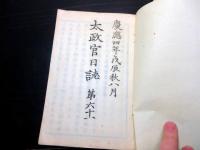 慶應四年戊辰秋八月
太政官日誌 第六十